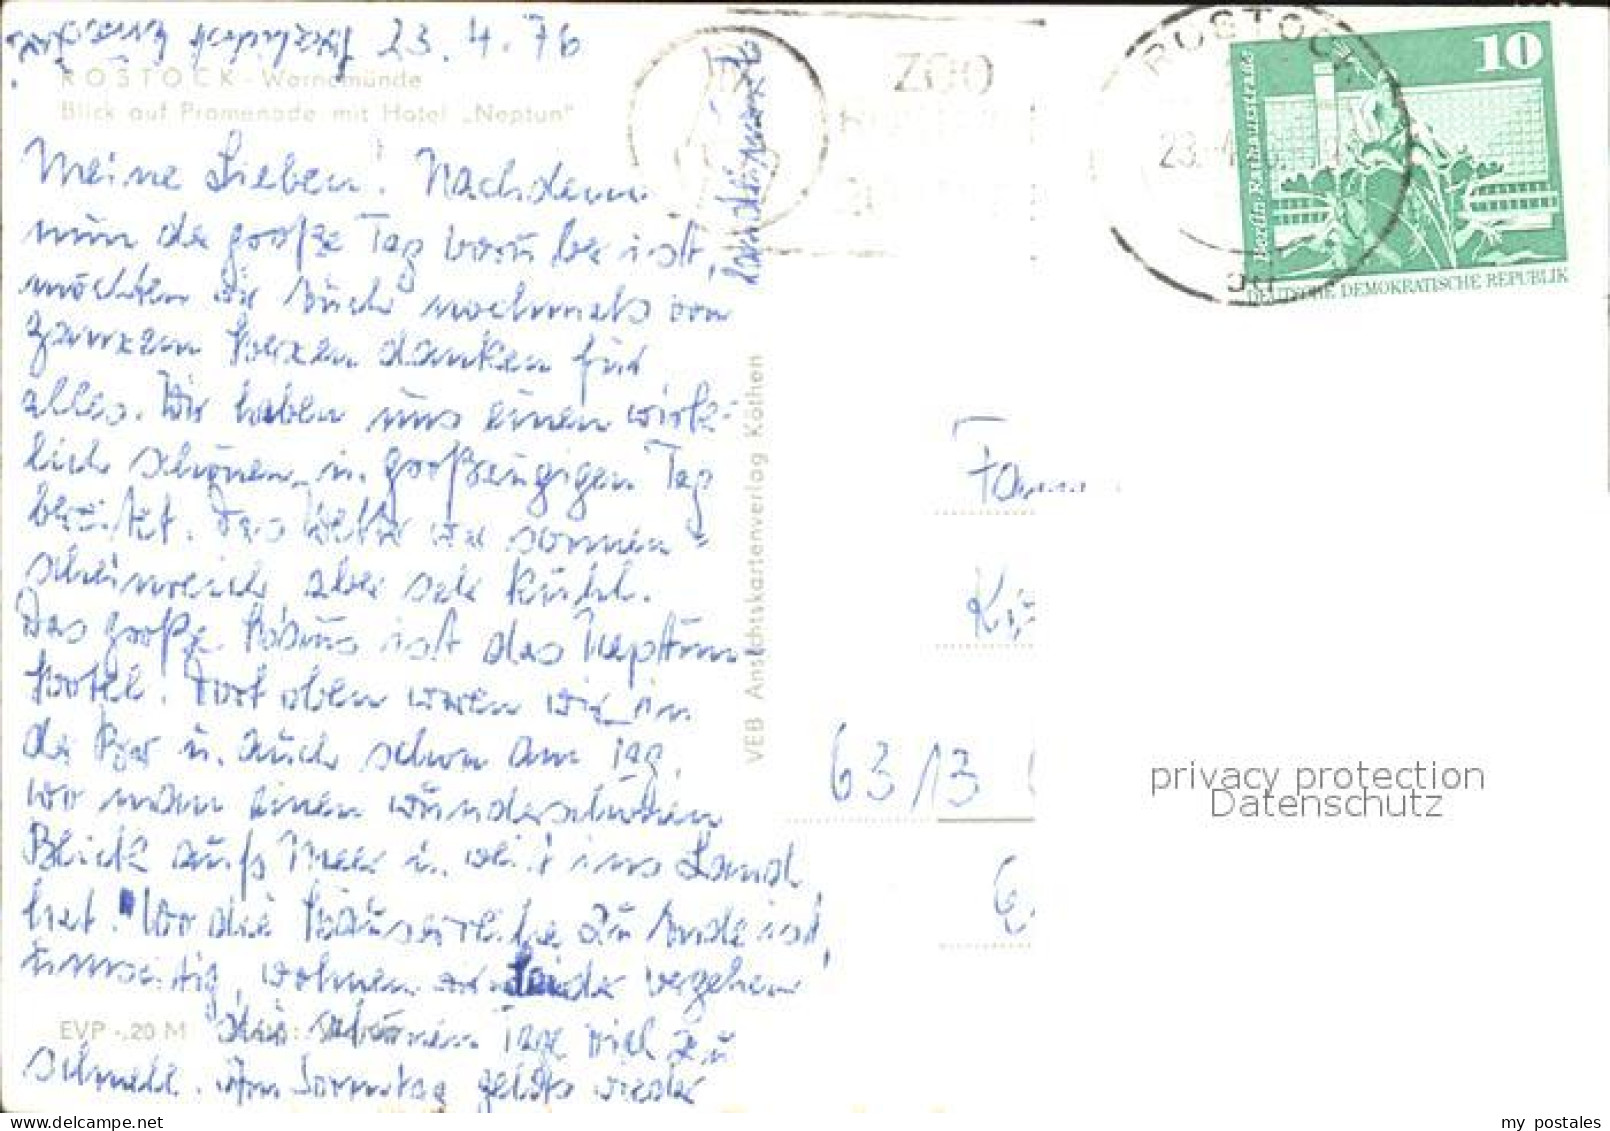 23.4.76
ROSTOCK - Warnemünde
Blick auf Promenade mit Hotel „Neptun"
Meine Lieben. Nachdem
nun der große Tag vorüber ist,
möchten wir Euch nochmals von
ganzem Herzen danken für
alles. Wir haben uns einen wirk-
lich schönen u. großzügigen Tag
bereitet. Das Wetter war sonnen-
scheinreich aber sehr kühl.
Das große Haus ist das Neptun-
hotel. Dort oben waren wir in
der Bar u. auch schon am Tag,
wo man einen wunderschönen
Blick aufs Meer u. weit ins Land
hat. Wo die Häuserreihe zu Ende ist,
wohnen wir. Leider vergehen
die schönen Tage viel zu
schnell. Am Sonntag geht's wieder
EVP -,20 M
VEB Ansichtskartenverlag Köthen
ZOO
ROSTOCK
23.-4.
10
Berlin Rathausstraße
DEUTSCHE DEMOKRATISCHE REPUBLIK
Fam
63 13
privacy protection
Datenschutz
my postales